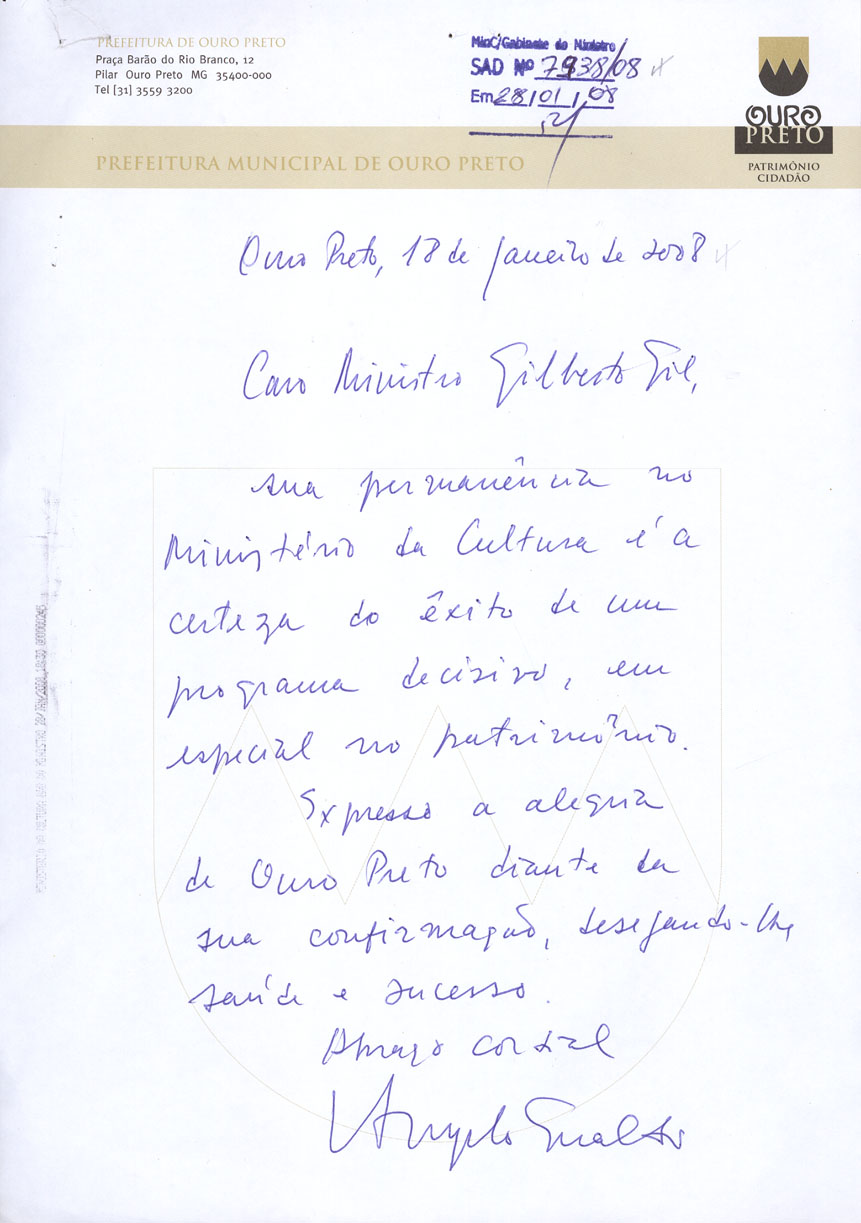 PREFEITURA DE OURO PRETO
Praça Barão do Rio Branco, 12
Pilar Ouro Preto MG 35400-000
Tel [31] 3559 3200
MinC/Gabinete do Ministro
SAD Nº 7938/08
Em 28/01/08
OURO
PRETO
PATRIMÔNIO
CIDADÃO
PREFEITURA MUNICIPAL DE OURO PRETO
Ouro Preto, 18 de janeiro de 2008
Caro Ministro Gilberto Gil,
sua permanência no
Ministério da Cultura é a
certeza do êxito de um
programa decisivo, em
especial no patrimônio.
Expresso a alegria
de Ouro Preto diante da
sua confirmação, desejando-lhe
saúde e sucesso.
Abraço cordial
Angelo Oswaldo